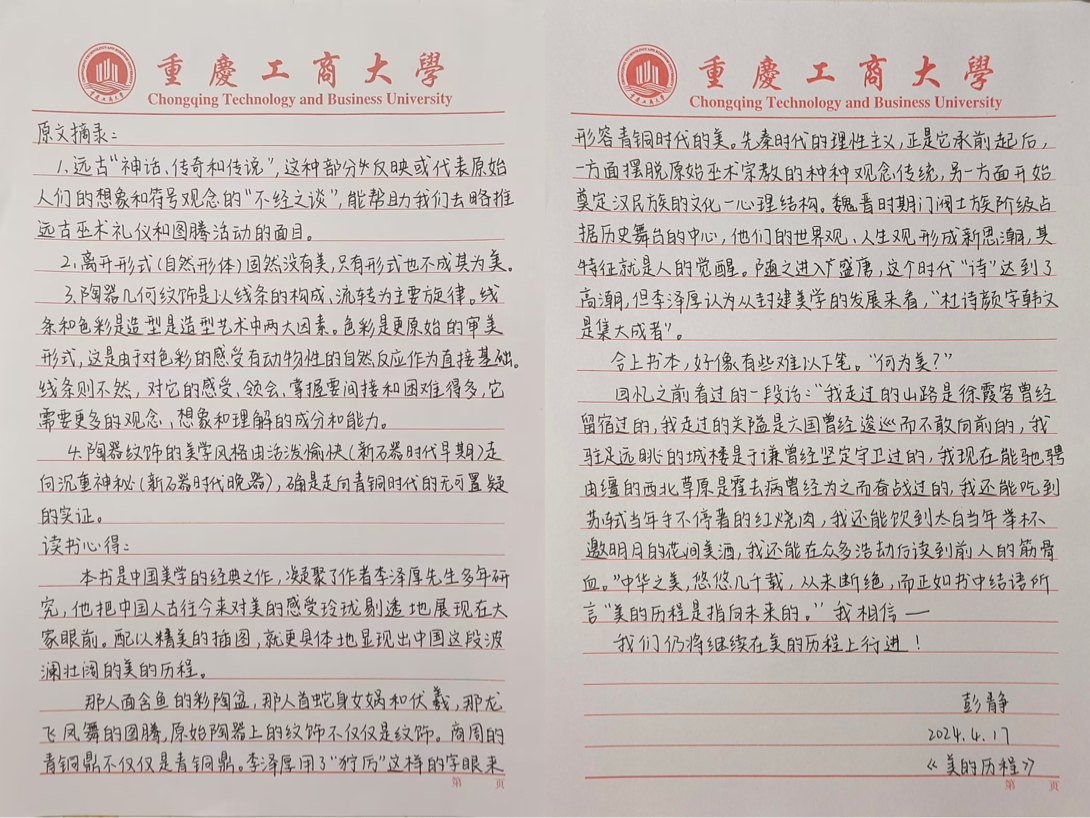 重慶工商大學
Chongqing Technology and Business University
原文摘录：
1.远古“神话、传奇和传说”，这种部分反映或代表原始
人们的想象和符号观念的“不经之谈”，能帮助我们去略推
远古巫术礼仪和图腾活动的面目。
2.离开形式(自然形体)固然没有美，只有形式也不成其为美。
3.陶器几何纹饰是以线条的构成、流转为主要旋律。线
条和色彩是造型是造型艺术中两大因素。色彩是更原始的审美
形式，这是由于对色彩的感受有动物性的自然反应作为直接基础。
线条则不然，对它的感受、领会、掌握要间接和困难得多，它
需要更多的观念、想象和理解的成分和能力。
4.陶器纹饰的美学风格由活泼愉快(新石器时代早期)走
向沉重神秘(新石器时代晚器)，确是走向青铜时代的无可置疑
的实证。
读书心得：
本书是中国美学的经典之作，凝聚了作者李泽厚先生多年研
究，他把中国人古往今来对美的感受玲珑剔透地展现在大
家眼前。配以精美的插图，就更具体地显现出中国这段波
澜壮阔的美的历程。
那人面含鱼的彩陶盆，那人首蛇身女娲和伏羲，那龙
飞凤舞的图腾，原始陶器上的纹饰不仅仅是纹饰。商周的
青铜鼎不仅仅是青铜鼎。李泽厚用了“狞厉”这样的字眼来
第 页
重慶工商大學
Chongqing Technology and Business University
形容青铜时代的美。先秦时代的理性主义，正是它承前起后，
一方面摆脱原始巫术宗教的种种观念传统，另一方面开始
奠定汉民族的文化—心理结构。魏晋时期门阀士族阶级占
据历史舞台的中心，他们的世界观、人生观形成新思潮，其
特征就是人的觉醒。随之进入盛唐，这个时代“诗”达到了
高潮，但李泽厚认为从封建美学的发展来看，“杜诗颜字韩文
是集大成者”。
合上书本，好像有些难以下笔。“何为美？”
回忆之前看过的一段话：“我走过的山路是徐霞客曾经
留宿过的，我走过的关隘是六国曾经逡巡而不敢向前的，我
驻足远眺的城楼是于谦曾经坚定守卫过的，我现在能驰骋
由缰的西北草原是霍去病曾经为之而奋战过的，我还能吃到
苏轼当年手不停著的红烧肉，我还能饮到太白当年举杯
邀明月的花间美酒，我还能在众多浩劫后读到前人的筋骨
血。”中华之美，悠悠几千载，从未断绝，而正如书中结语所
言“美的历程是指向未来的。”我相信—
我们仍将继续在美的历程上行进！
彭静
2024.4.17
《美的历程》
第 页